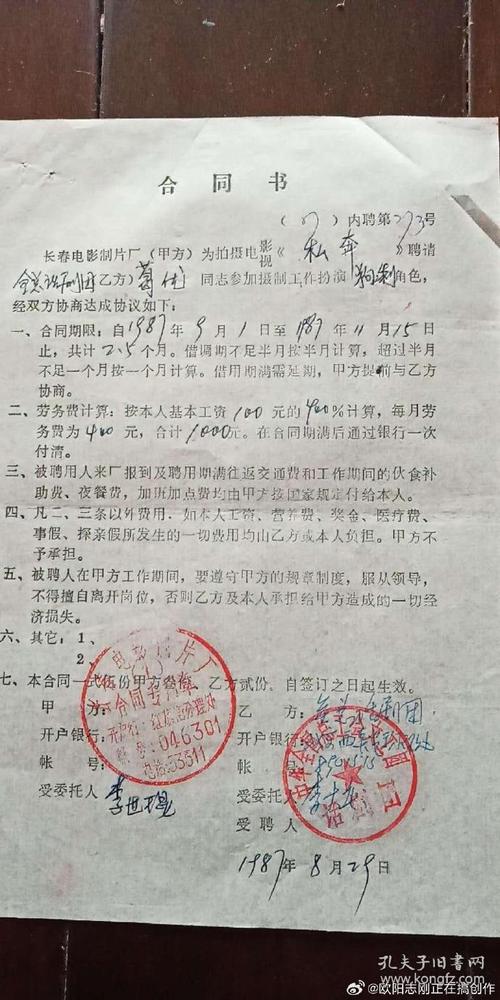 合同书
(87)内聘第273号
长春电影制片厂(甲方)为拍摄电影视《私奔》聘请
全总话剧团乙方)葛优同志参加摄制工作扮演 角色,
经双方协商达成协议如下:
一、合同期限:自1987年9月1日至1987年11月15日
止,共计2.5个月。借调期不足半月按半月计算,超过半月
不足一个月按一个月计算。借用期满需延期,甲方提前与乙方
协商。
二、劳务费计算:按本人基本工资100元的400%计算,每月劳
务费为400元,合计1000元。在合同期满后通过银行一次
付清。
三、被聘用人来厂报到及聘用期满往返交通费和工作期间的伙食补
助费、夜餐费,加班加点费均由甲方按国家规定付给本人。
四、凡二、三条以外费用,如本人工资、营养费、奖金、医疗费、
事假、探亲假所发生的一切费用均由乙方或本人负担。甲方不
予承担。
五、被聘人在甲方工作期间,要遵守甲方的规章制度,服从领导,
不得擅自离开岗位,否则乙方及本人承担给甲方造成的一切经
济损失。
六、其它:1、
2、
七、本合同一式伍份甲方叁份,乙方贰份,自签订之日起生效。
甲方: 乙方:全总话剧团
开户银行: 开户银行:
帐号: 帐号:
受委托人 受委托人
受聘人
1987年8月29日
电影制片厂
合同专用章
046301
电话:53311
话剧团
孔夫子旧书网
@欧阳志刚正在搞创作